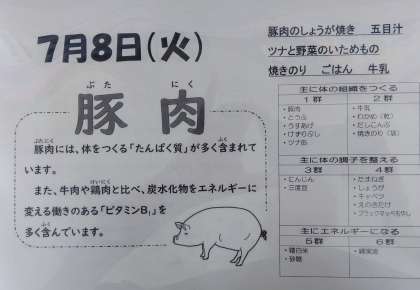 7月8日(火)
豚肉のしょうが焼き 五目汁
ツナと野菜のいためもの
焼きのり ごはん 牛乳
ぶた にく
豚肉
豚肉には、体をつくる「たんぱく質」が多く含まれて
います。
また、牛肉や鶏肉と比べ、炭水化物をエネルギーに
変える働きのある「ビタミンB₁」を
多く含んでいます。
主に体の組織をつくる
1群 2群
・豚肉 ・牛乳
・とうふ ・わかめ(乾)
・うすあげ ・だしこんぶ
・けずりぶし ・焼きのり(袋)
・ツナ缶
主に体の調子を整える
3群 4群
・にんじん ・たまねぎ
・三度豆 ・しょうが
・キャベツ
・えのきたけ
・ブラックマッペもやし
主にエネルギーになる
5群 6群
・精白米 ・綿実油
・砂糖